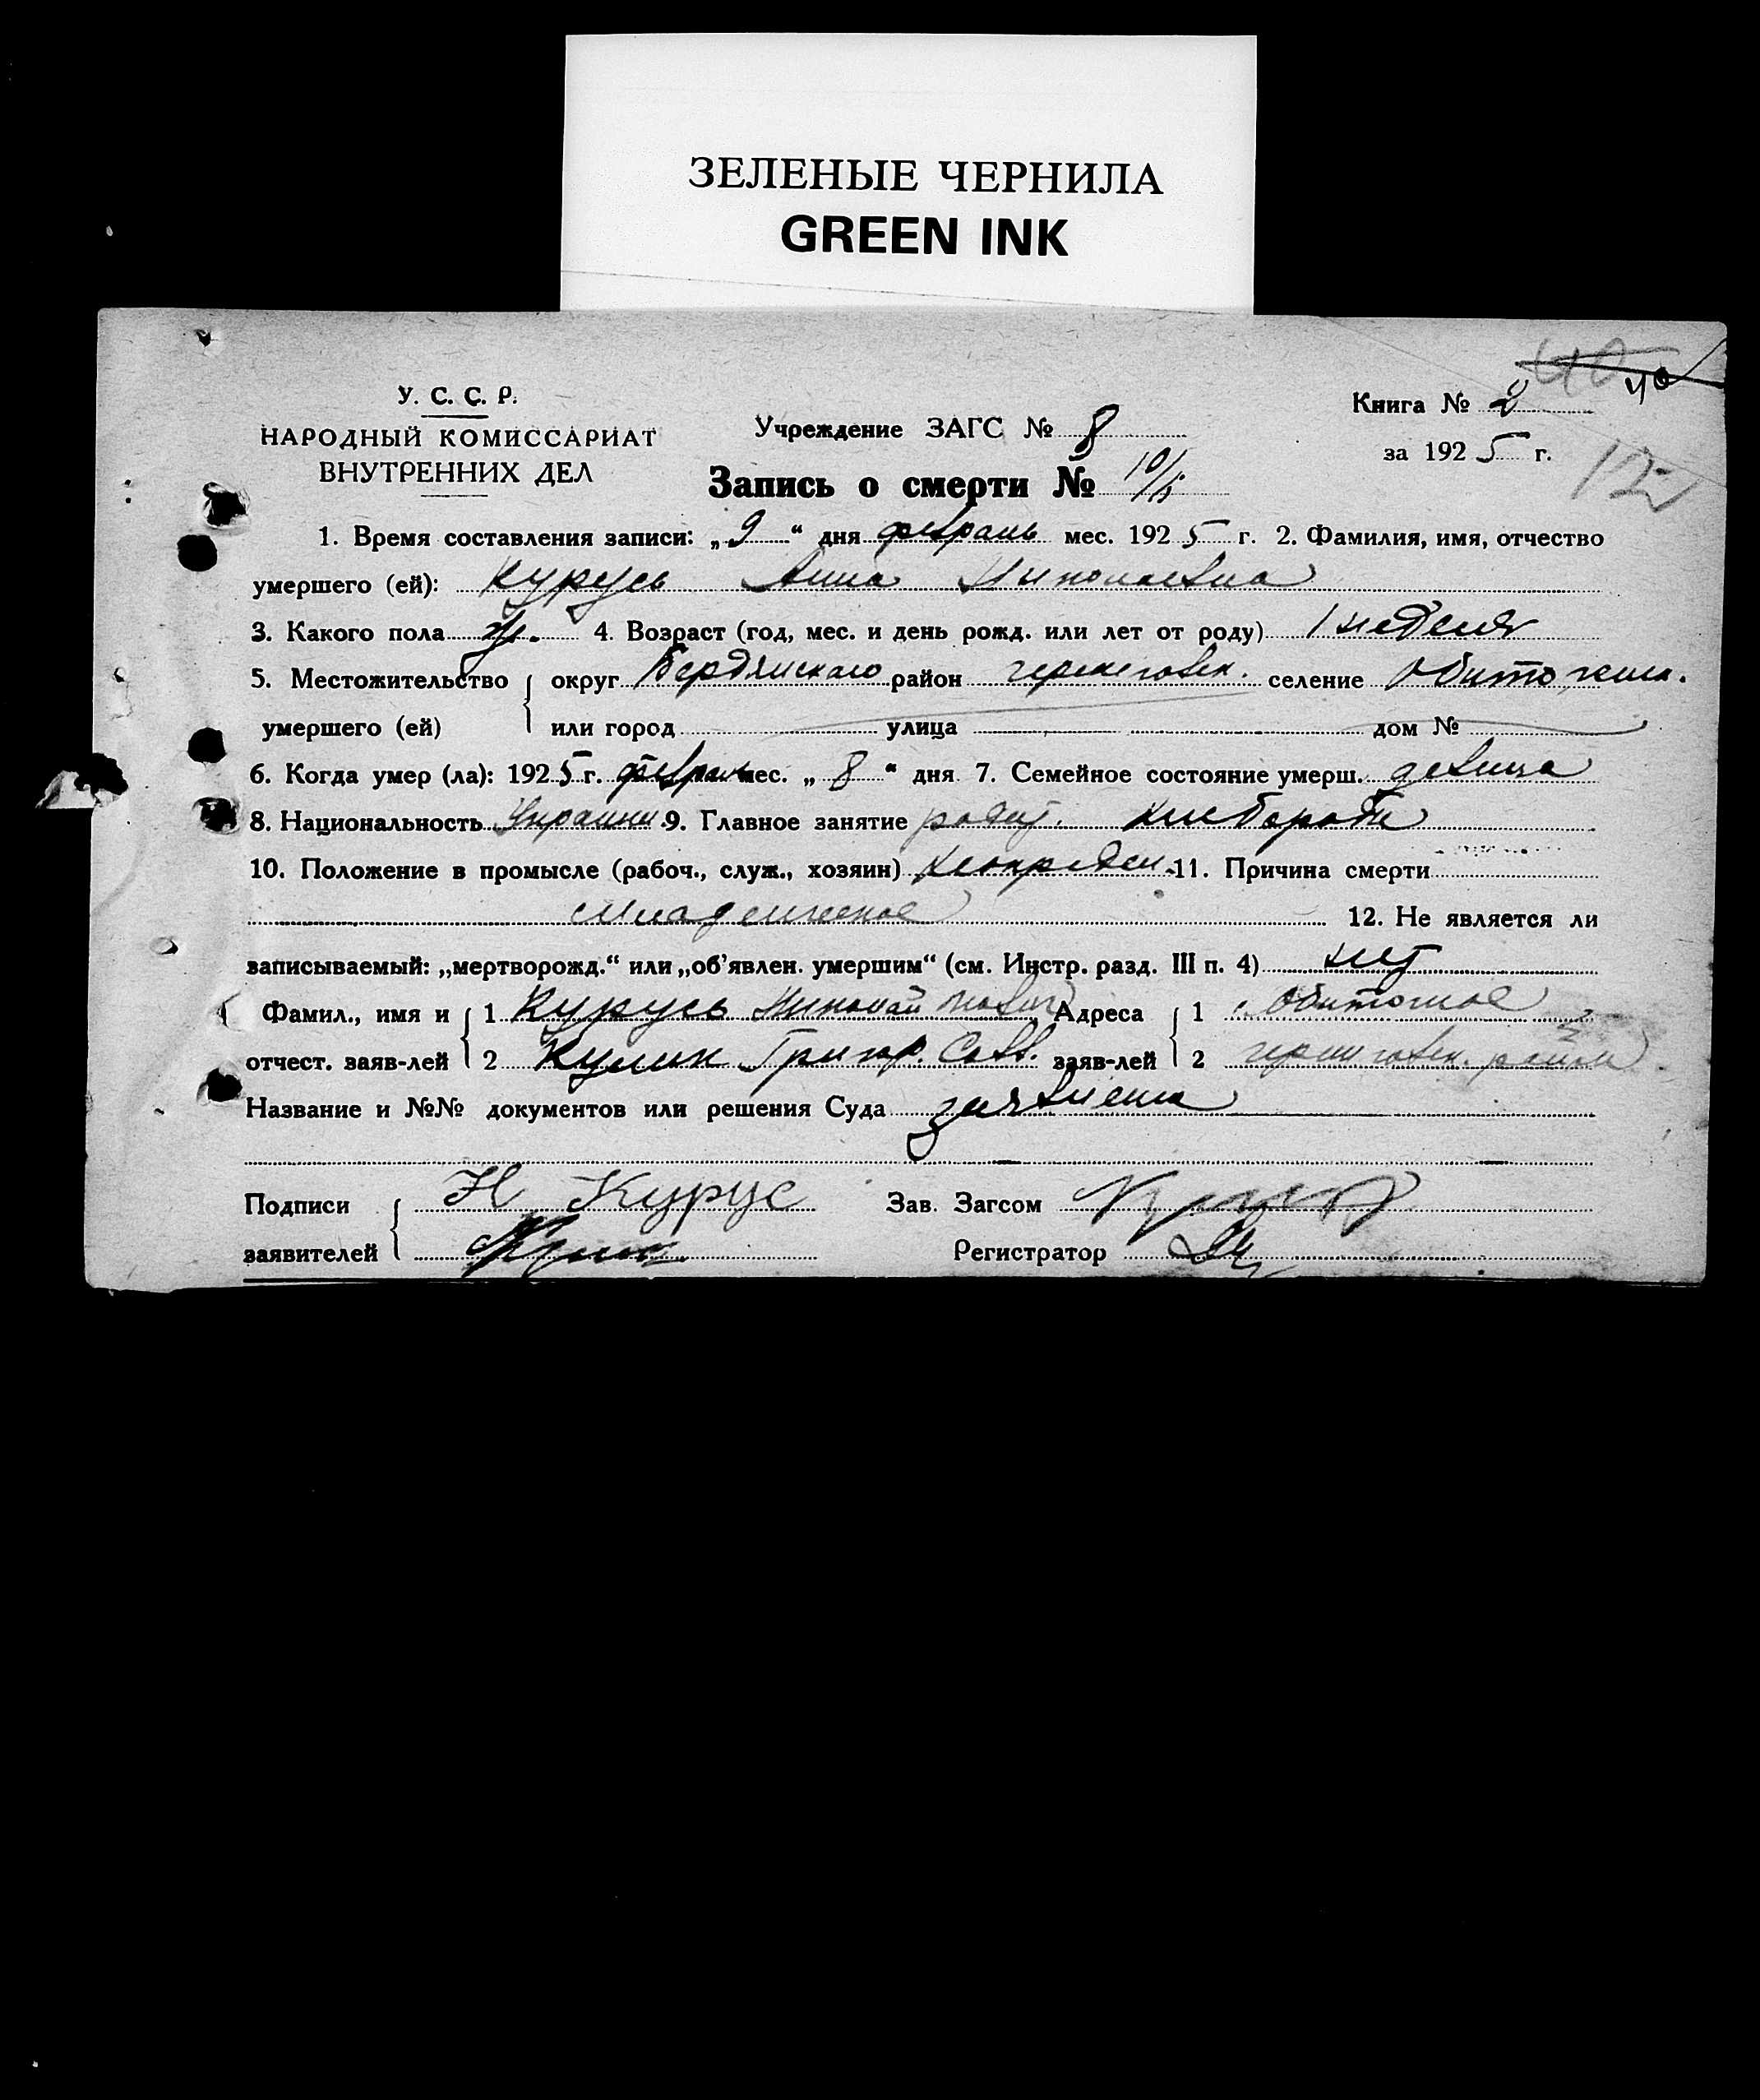 ЗЕЛЕНЫЕ ЧЕРНИЛА
GREEN INK
40
У. С. С. Р.
НАРОДНЫЙ КОМИССАРИАТ
ВНУТРЕННИХ ДЕЛ
Учреждение ЗАГС № 8
Книга № 2
за 1925 г.
Запись о смерти №
1. Время составления записи: „9“ дня февраль мес. 1925 г. 2. Фамилия, имя, отчество
умершего (ей): Курусь Анна Николаевна
3. Какого пола ж. 4. Возраст (год, мес. и день рожд. или лет от роду) 1 неделя
5. Местожительство округ Бердянскаго район черниговск. селение Обиточен.
умершего (ей) или город улица дом №
6. Когда умер (ла): 1925 г. февраль мес. „8“ дня 7. Семейное состояние умерш. девица
8. Национальность Украин. 9. Главное занятие
10. Положение в промысле (рабоч., служ., хозяин) 11. Причина смерти
младенческое 12. Не является ли
записываемый: „мертворожд.“ или „об'явлен. умершим“ (см. Инстр. разд. III п. 4) нет
Фамил., имя и 1 Курусь Николай Адреса 1 Обиточное
отчест. заяв-лей 2 Кулик Григор. Савв. заяв-лей 2 черниговск. район
Название и №№ документов или решения Суда заявления
Подписи Н Курус Зав. Загсом
заявителей Регистратор